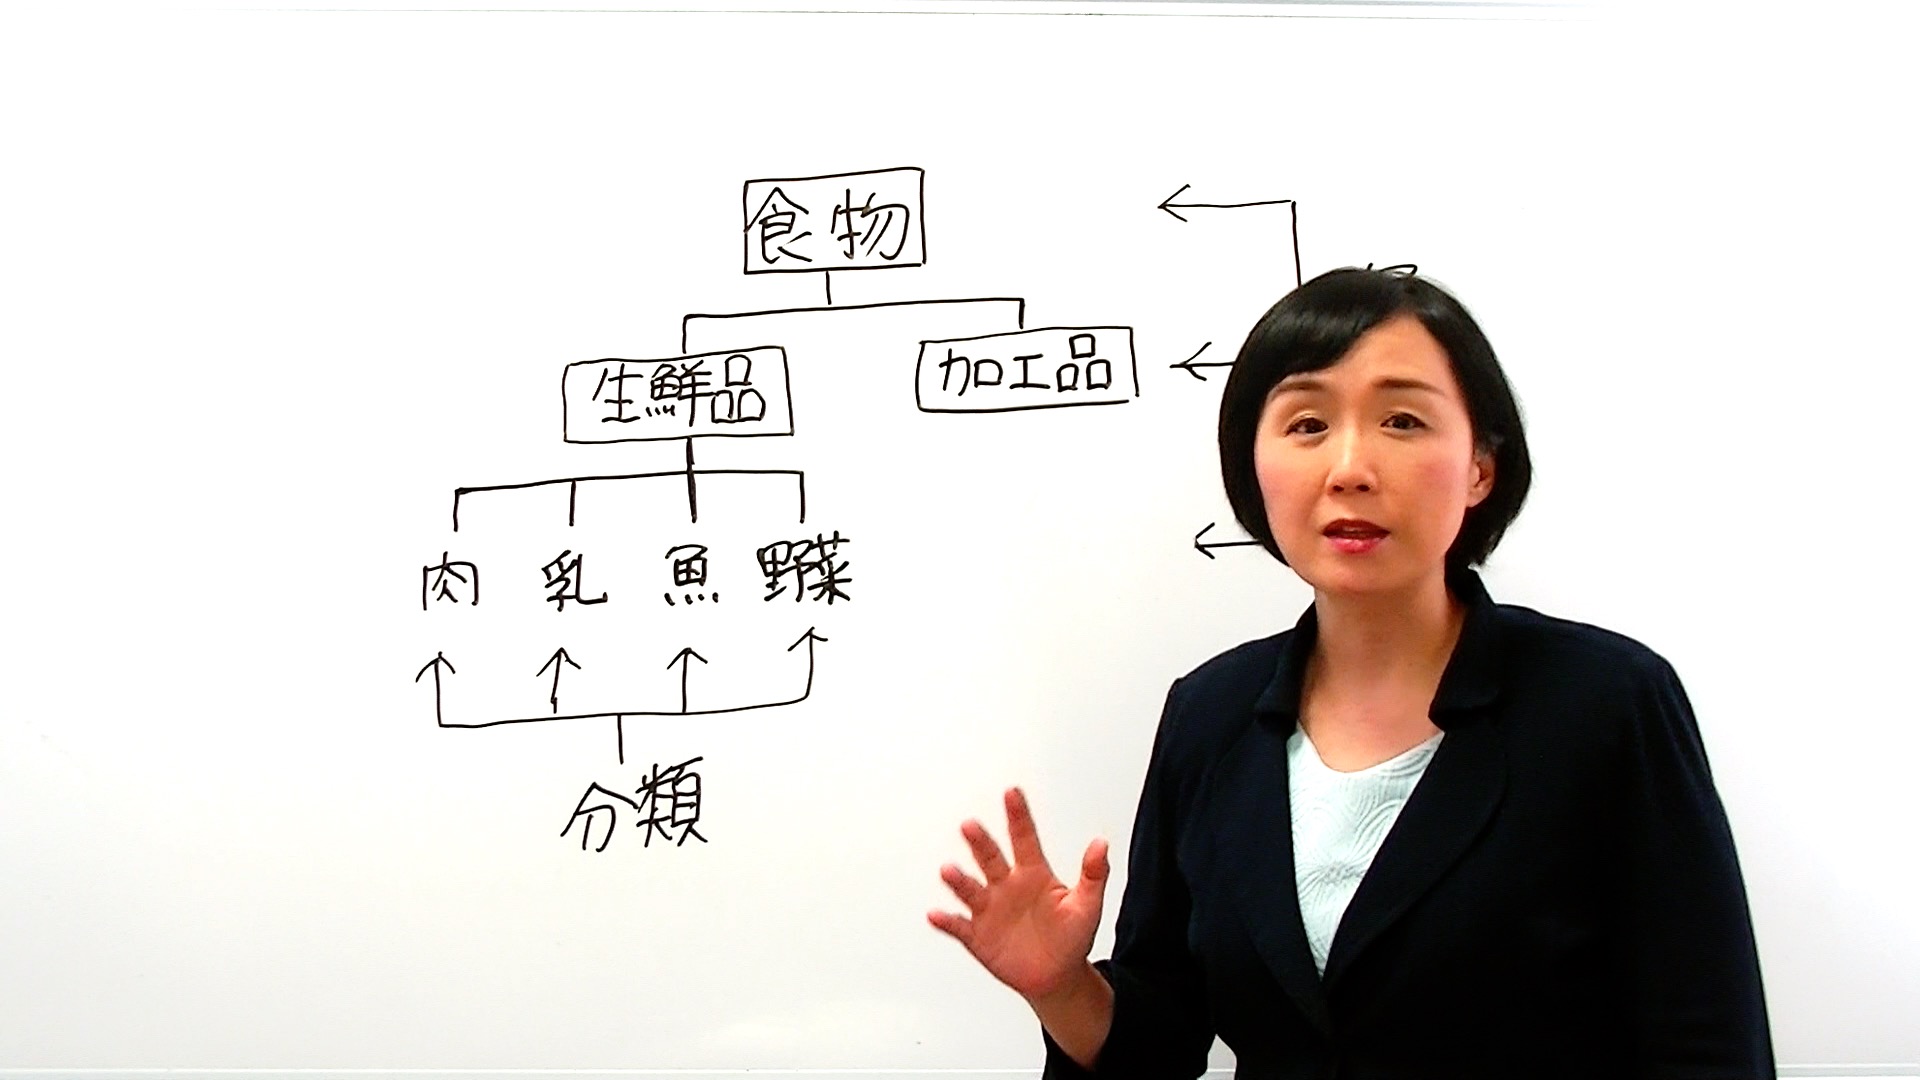 食物
生鮮品 加工品
肉 乳 魚 野菜
分類